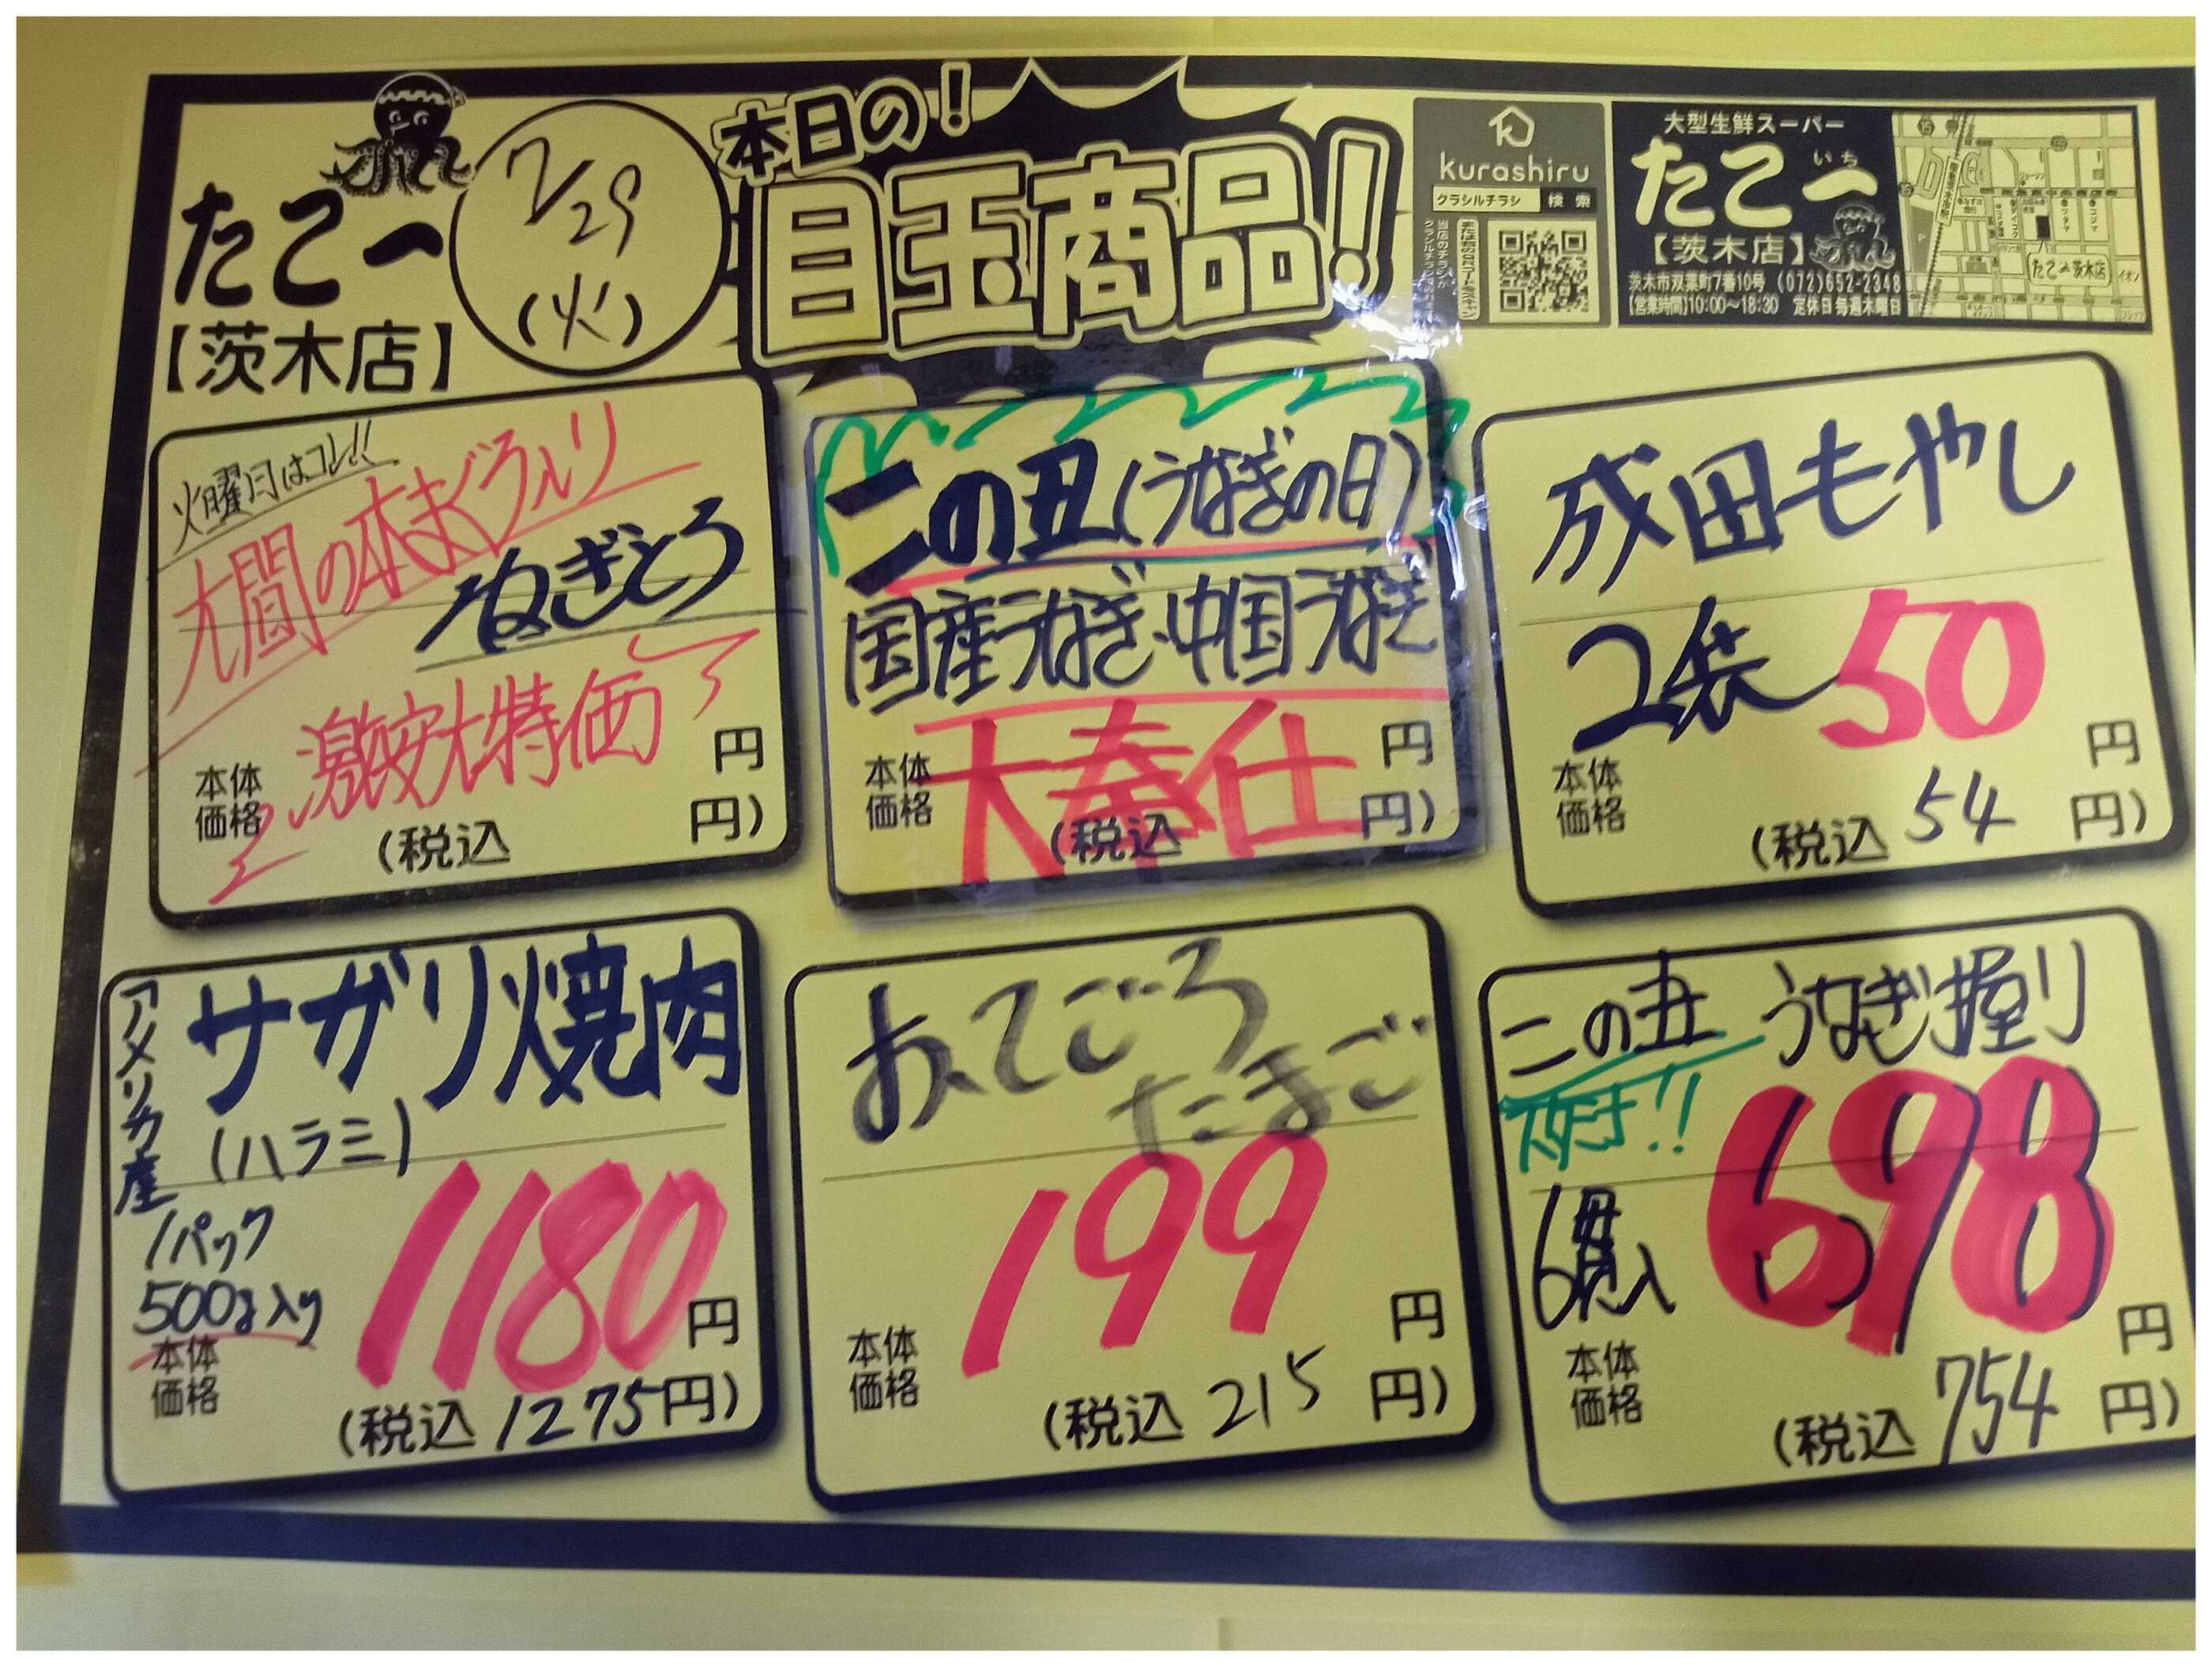 たこ一
【茨木店】
7/29
(火)
本日の!
目玉商品!
kurashiru
クラシルチラシ 検索
大型生鮮スーパー
たこ一
いち
【茨木店】
茨木市双葉町7番10号 (072)652-2348
【営業時間】10:00〜18:30 定休日 毎週木曜日
たこ一茨木店
イオン
火曜日はコレ!!
大間の本まぐろ入り
ねぎとろ
激安大特価
本体
価格
円
(税込 円)
二の丑(うなぎの日)
国産うなぎ・中国うなぎ
大奉仕
本体
価格
円
(税込 円)
成田もやし
2袋 50
円
本体
価格
(税込 54 円)
アメリカ産
サガリ焼肉
(ハラミ)
1パック
500g入り
1180
円
本体
価格
(税込 1275円)
おてごろ
たまご
199
円
本体
価格
(税込 215 円)
二の丑 うなぎ握り
6貫入
698
円
本体
価格
(税込 754 円)